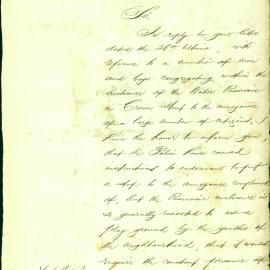 Sir,
In reply to your letter
dated the 26th Ultimo, with
reference to a number of men
and boys congregating within the
enclosure of the Water Reservoir
in Crown Street to the annoyance
of a large number of citizens, I
have the honor to inform you,
that the Police have received
instructions to endeavour to put
a stop to the annoyance complained
of, but the Reservoir enclosure is
so generally resorted to as a
play ground by the youths of
the neighbourhood, that it would
require the constant presence of